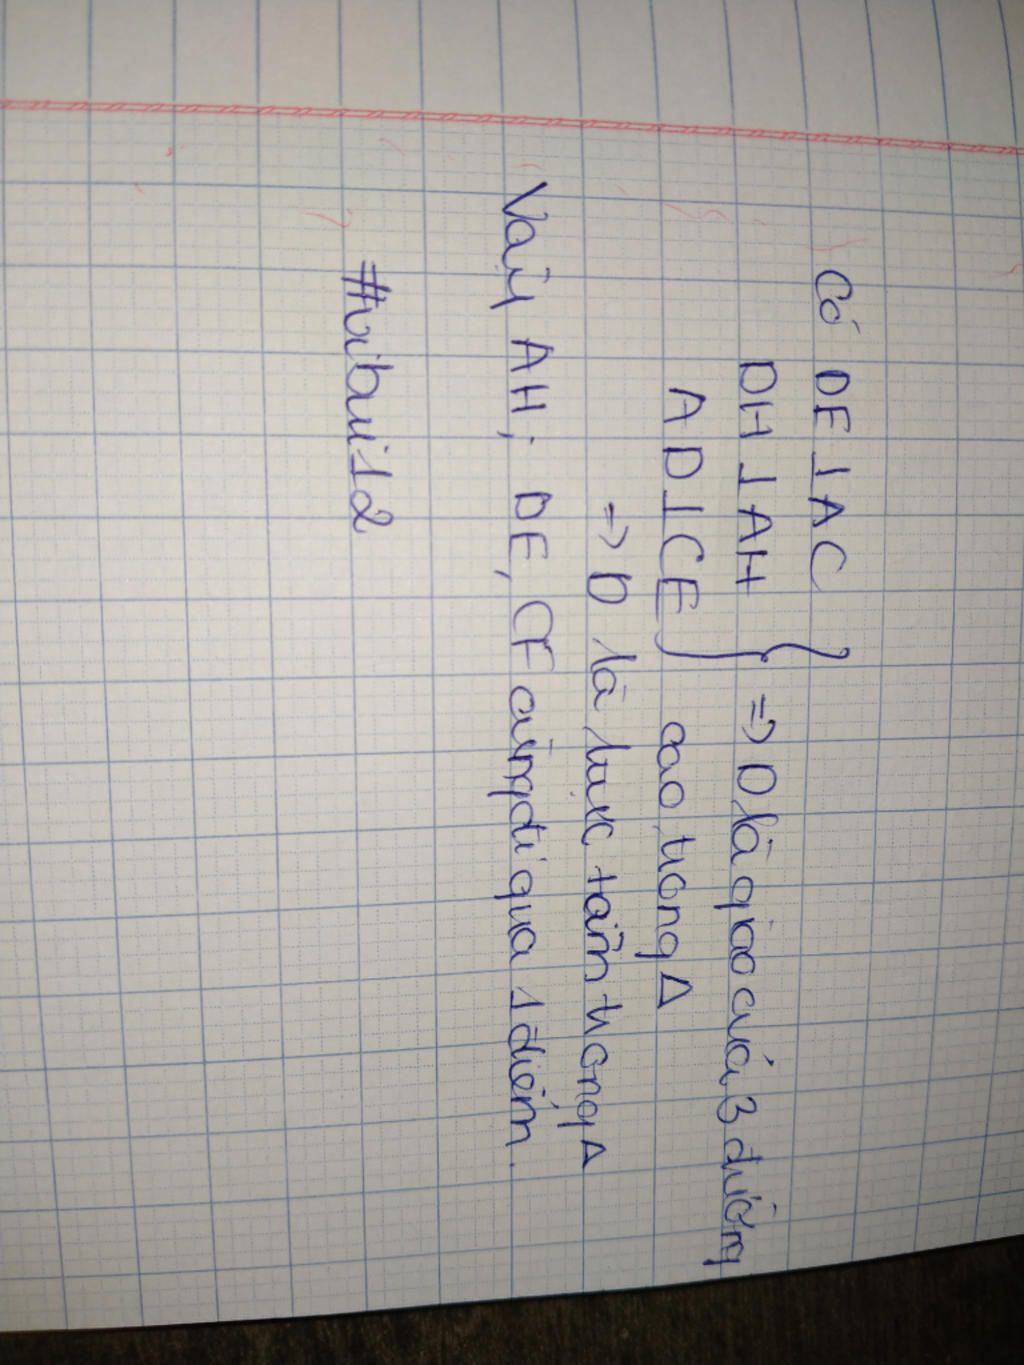 Có DE⊥AC
DH⊥AH } => D là giao của 3 đường
AD⊥CE cao trong Δ
=> D là trực tâm trong Δ
Vậy AH; DE, CF cùng đi qua 1 điểm.